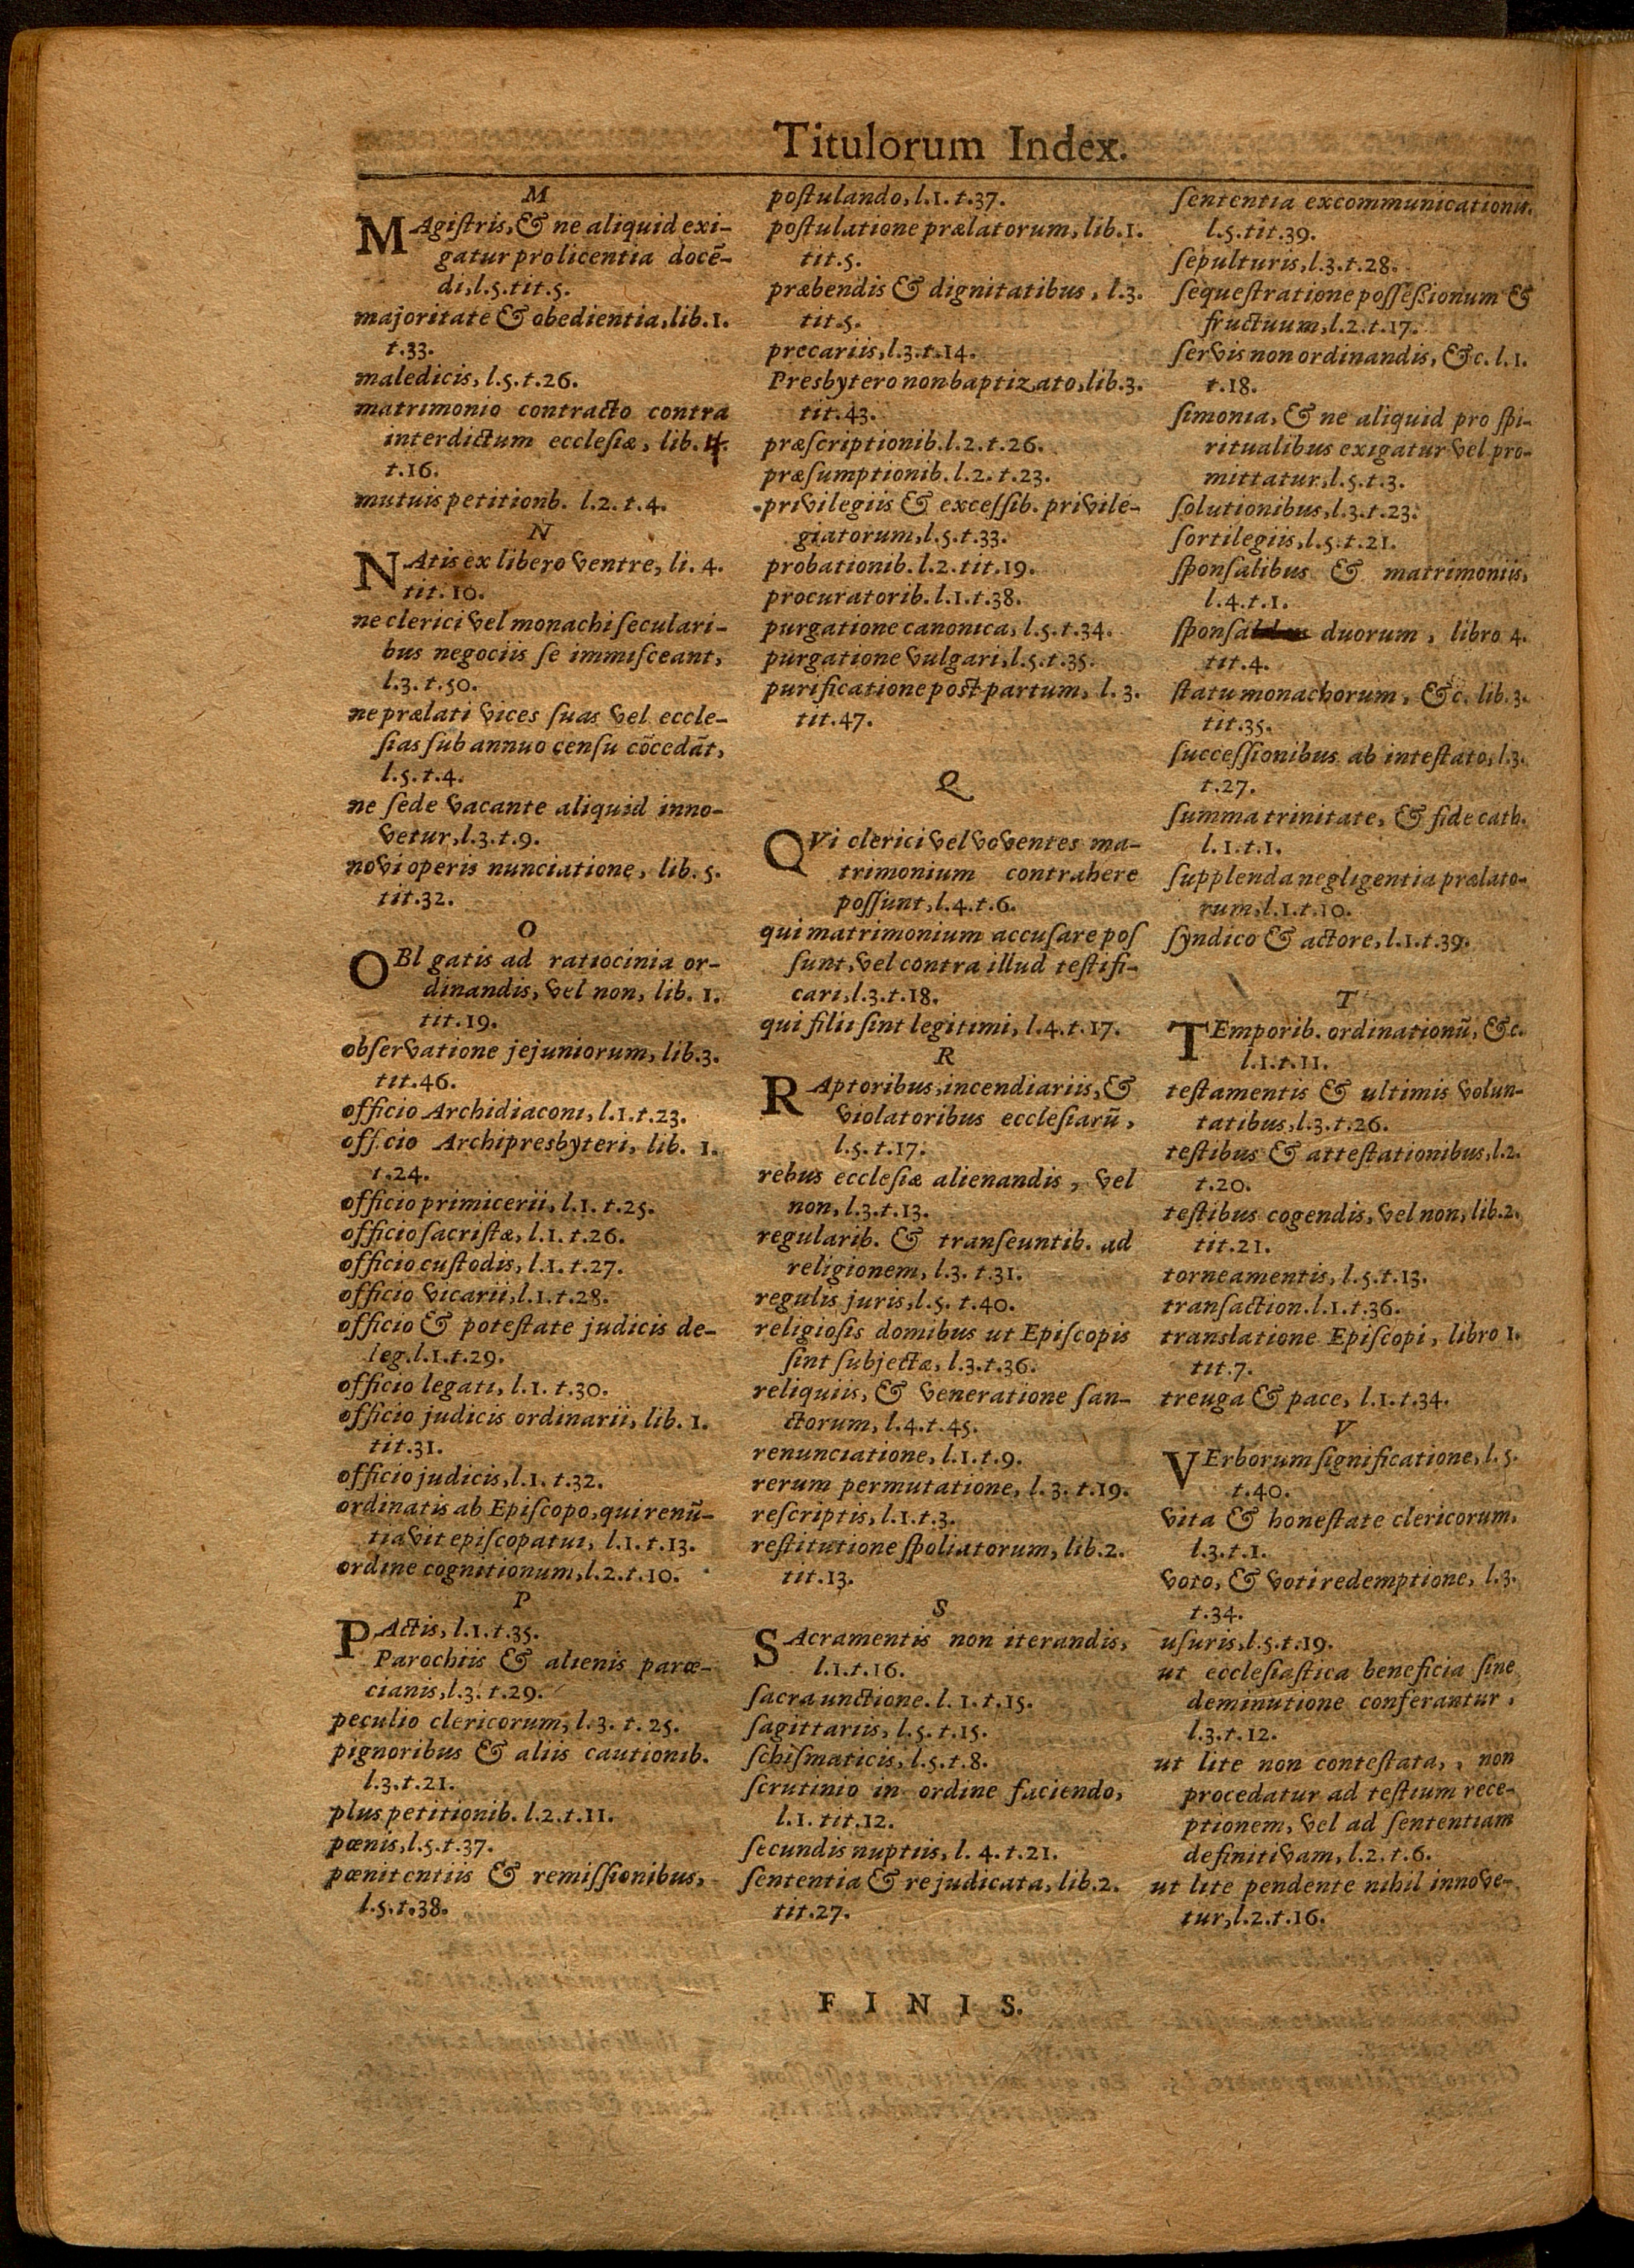 Titulorum Index.
M
MAgiſtris, & ne aliquid exi-
gatur pro licentia docẽ-
di, l.5. tit.5.
majoritate & obedientia, lib.1.
t.33.
maledicis, l.5. t.26.
matrimonio contracto contra
interdictum eccleſiæ, lib. 4.
t.16.
mutuis petitionb. l.2. t.4.
N
NAtis ex libero ventre, li. 4.
tit. 10.
ne clerici vel monachi ſeculari-
bus negociis ſe immiſceant,
l.3. t.50.
ne prælati vices ſuas vel eccle-
ſias ſub annuo cenſu cõcedãt,
l.5. t.4.
ne ſede vacante aliquid inno-
vetur, l.3. t.9.
novi operis nunciatione, lib. 5.
tit.32.
O
OBl gatis ad ratiocinia or-
dinandis, vel non, lib. 1.
tit.19.
obſervatione jejuniorum, lib.3.
tit.46.
officio Archidiaconi, l.1. t.23.
officio Archipresbyteri, lib. 1.
t.24.
officio primicerii, l.1. t.25.
officio ſacriſtæ, l.1. t.26.
officio cuſtodis, l.1. t.27.
officio vicarii, l.1. t.28.
officio & poteſtate judicis de-
leg. l.1. t.29.
officio legati, l.1. t.30.
officio judicis ordinarii, lib. 1.
tit.31.
officio judicis, l.1. t.32.
ordinatis ab Epiſcopo, qui renũ-
tiavit epiſcopatui, l.1. t.13.
ordine cognitionum, l.2. t.10.
P
PActis, l.1. t.35.
Parochiis & alienis parœ-
cianis, l.3. t.29.
peculio clericorum, l.3. t. 25.
pignoribus & aliis cautionib.
l.3. t.21.
plus petitionib. l.2. t.11.
pœnis, l.5. t.37.
pœnitentiis & remiſſionibus,
l.5. t.38.
poſtulando, l.1. t.37.
poſtulatione prælatorum, lib.1.
tit.5.
præbendis & dignitatibus, l.3.
tit.5.
precariis, l.3. t.14.
Presbytero non baptizato, lib.3.
tit.43.
præſcriptionib. l.2. t.26.
præſumptionib. l.2. t.23.
privilegiis & exceſſib. privile-
giatorum, l.5. t.33.
probationib. l.2. tit.19.
procuratorib. l.1. t.38.
purgatione canonica, l.5. t.34.
purgatione vulgari, l.5. t.35.
purificatione post partum, l. 3.
tit.47.
Q
QVi clerici vel voventes ma-
trimonium contrahere
poſſunt, l.4. t.6.
qui matrimonium accuſare poſ
ſunt, vel contra illud teſtifi-
cari, l.3. t.18.
qui filii ſint legitimi, l.4. t.17.
R
RAptoribus, incendiariis, &
violatoribus eccleſiarũ,
l.5. t.17.
rebus eccleſiæ alienandis, vel
non, l.3. t.13.
regularib. & tranſeuntib. ad
religionem, l.3. t.31.
regulis juris, l.5. t.40.
religioſis domibus ut Epiſcopis
ſint ſubjectæ, l.3. t.36.
reliquiis, & veneratione ſan-
ctorum, l.4. t.45.
renunciatione, l.1. t.9.
rerum permutatione, l. 3. t.19.
reſcriptis, l.1. t.3.
reſtitutione ſpoliatorum, lib.2.
tit.13.
S
SAcramentis non iterandis,
l.1. t.16.
ſacra unctione. l. 1. t.15.
ſagittariis, l.5. t.15.
ſchiſmaticis, l.5. t.8.
ſcrutinio in ordine faciendo,
l.1. tit.12.
ſecundis nuptiis, l. 4. t.21.
ſententia & re judicata, lib.2.
tit.27.
ſententia excommunicationis.
l.5. tit.39.
ſepulturis, l.3. t.28.
ſequeſtratione poſſeßionum &
fructuum, l.2. t.17.
ſervis non ordinandis, &c. l.1.
t.18.
ſimonia, & ne aliquid pro ſpi-
ritualibus exigatur vel pro-
mittatur, l.5. t.3.
ſolutionibus, l.3. t.23.
ſortilegiis, l.5. t.21.
ſponſalibus & matrimoniis,
l.4. t.1.
ſponſa duorum, libro 4.
tit.4.
ſtatu monachorum, &c. lib.3.
tit.35.
ſucceſſionibus ab inteſtato, l.3.
t.27.
ſumma trinitate, & fide cath.
l.1. t.1.
ſupplenda negligentia prælato-
rum, l.1. t.10.
ſyndico & actore, l.1. t.39.
T
TEmporib. ordinationũ, &c.
l.1. t.11.
teſtamentis & ultimis volun-
tatibus, l.3. t.26.
teſtibus & atteſtationibus, l.2.
t.20.
teſtibus cogendis, vel non, lib.2.
tit.21.
torneamentis, l.5. t.13.
tranſaction. l.1. t.36.
translatione Epiſcopi, libro 1.
tit.7.
treuga & pace, l.1. t.34.
V
VErborum ſignificatione, l.5.
t.40.
vita & honeſtate clericorum,
l.3. t.1.
voto, & voti redemptione, l.3.
t.34.
uſuris, l.5. t.19.
ut eccleſiaſtica beneficia ſine
deminutione conferantur,
l.3. t.12.
ut lite non conteſtata, , non
procedatur ad teſtium rece-
ptionem, vel ad ſententiam
definitivam, l.2. t.6.
ut lite pendente nihil innove-
tur, l.2. t.16.
F I N I S.